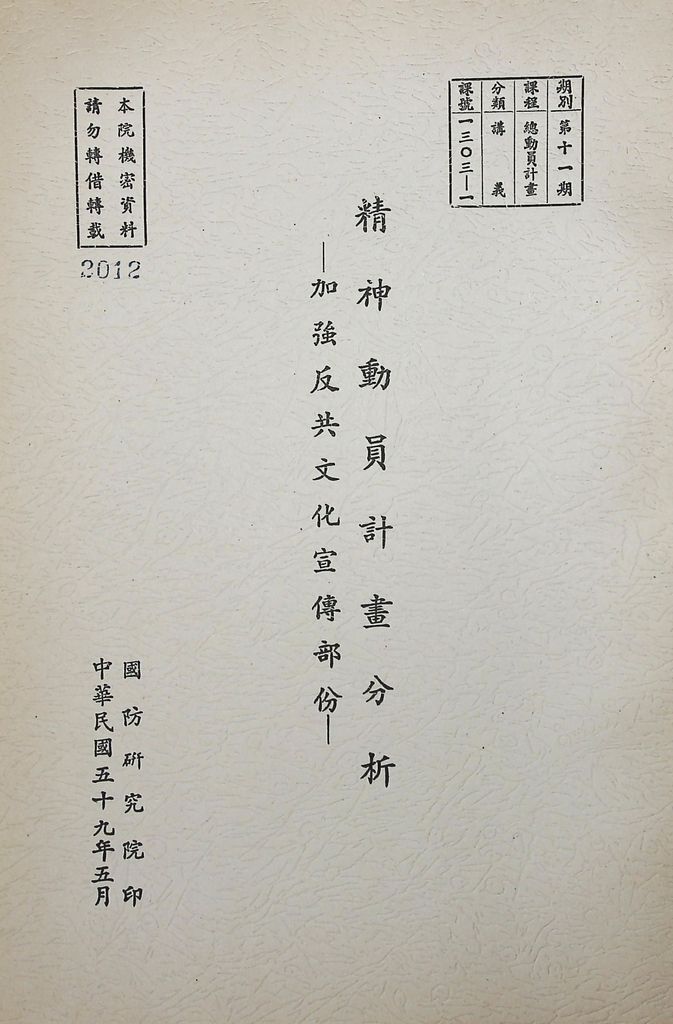 期別 第十一期
課程 總動員計畫
分類 講義
課號 一三〇三—一
精神動員計畫分析
—加強反共文化宣傳部份—
本院機密資料
請勿轉借轉載
2012
國防研究院印
中華民國五十九年五月